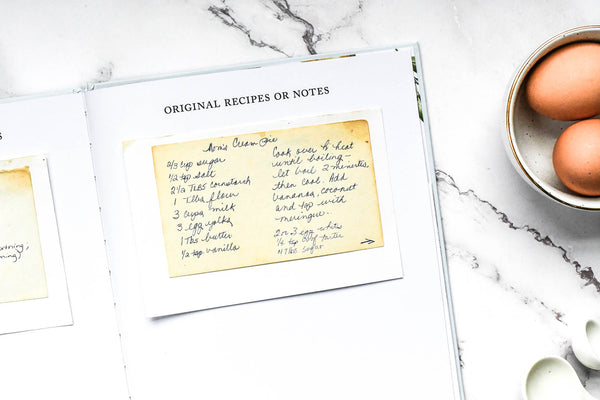 ORIGINAL RECIPES OR NOTES
S
Mom's Cream Pie
2/3 cup sugar
1/2 tsp salt
2 1/2 TBS cornstarch
1 Tbls flour
3 cups milk
3 egg yolks
1 TBS butter
1/2 tsp vanilla
Cook over heat
until boiling -
let boil 2 minutes
then cool. Add
bananas, coconut
and top with
meringue.
2 or 3 egg whites
1/4 tsp of tarter
4 TBLS sugar